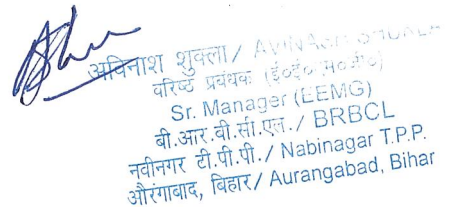 अविनाश शुक्ला / AVINASH SHUKLA
वरिष्ट प्रबंधक (ई०ई०एम०जी०)
Sr. Manager (EEMG)
बी.आर.बी.सी.एल. / BRBCL
नवीनगर टी.पी.पी. / Nabinagar T.P.P.
औरंगाबाद, बिहार / Aurangabad, Bihar